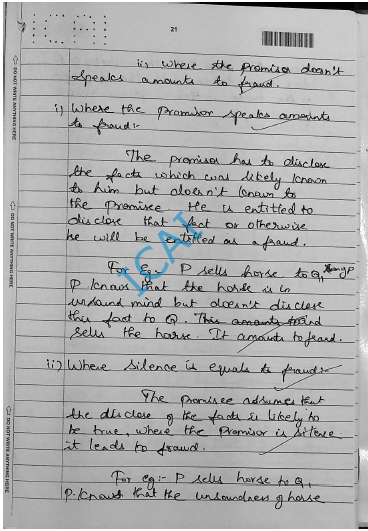 ICAI
21
ii) Where the promisor doesn't
speaks amounts to fraud.
i) Where the promisor speaks amounts
to fraud:-
The promisor has to disclose
the facts which was likely known
to him but doesn't known to
the promisee. He is entitled to
disclose that fact or otherwise
he will be entitled as a fraud.
For eg:- P sells horse to Q,
P knows that the horse is in
unsound mind but doesn't disclose
this fact to Q. This amounts
sells the horse. It amounts to fraud.
ii) Where silence is equals to fraud:-
The promisee assumes that
the disclose of the facts is likely to
be true, where the promisor is silence
it leads to fraud.
For eg:- P sells horse to Q,
P knows that the unsoundness of horse
DO NOT WRITE ANYTHING HERE
DO NOT WRITE ANYTHING HERE
DO NOT WRITE ANYTHING HERE
ICAI